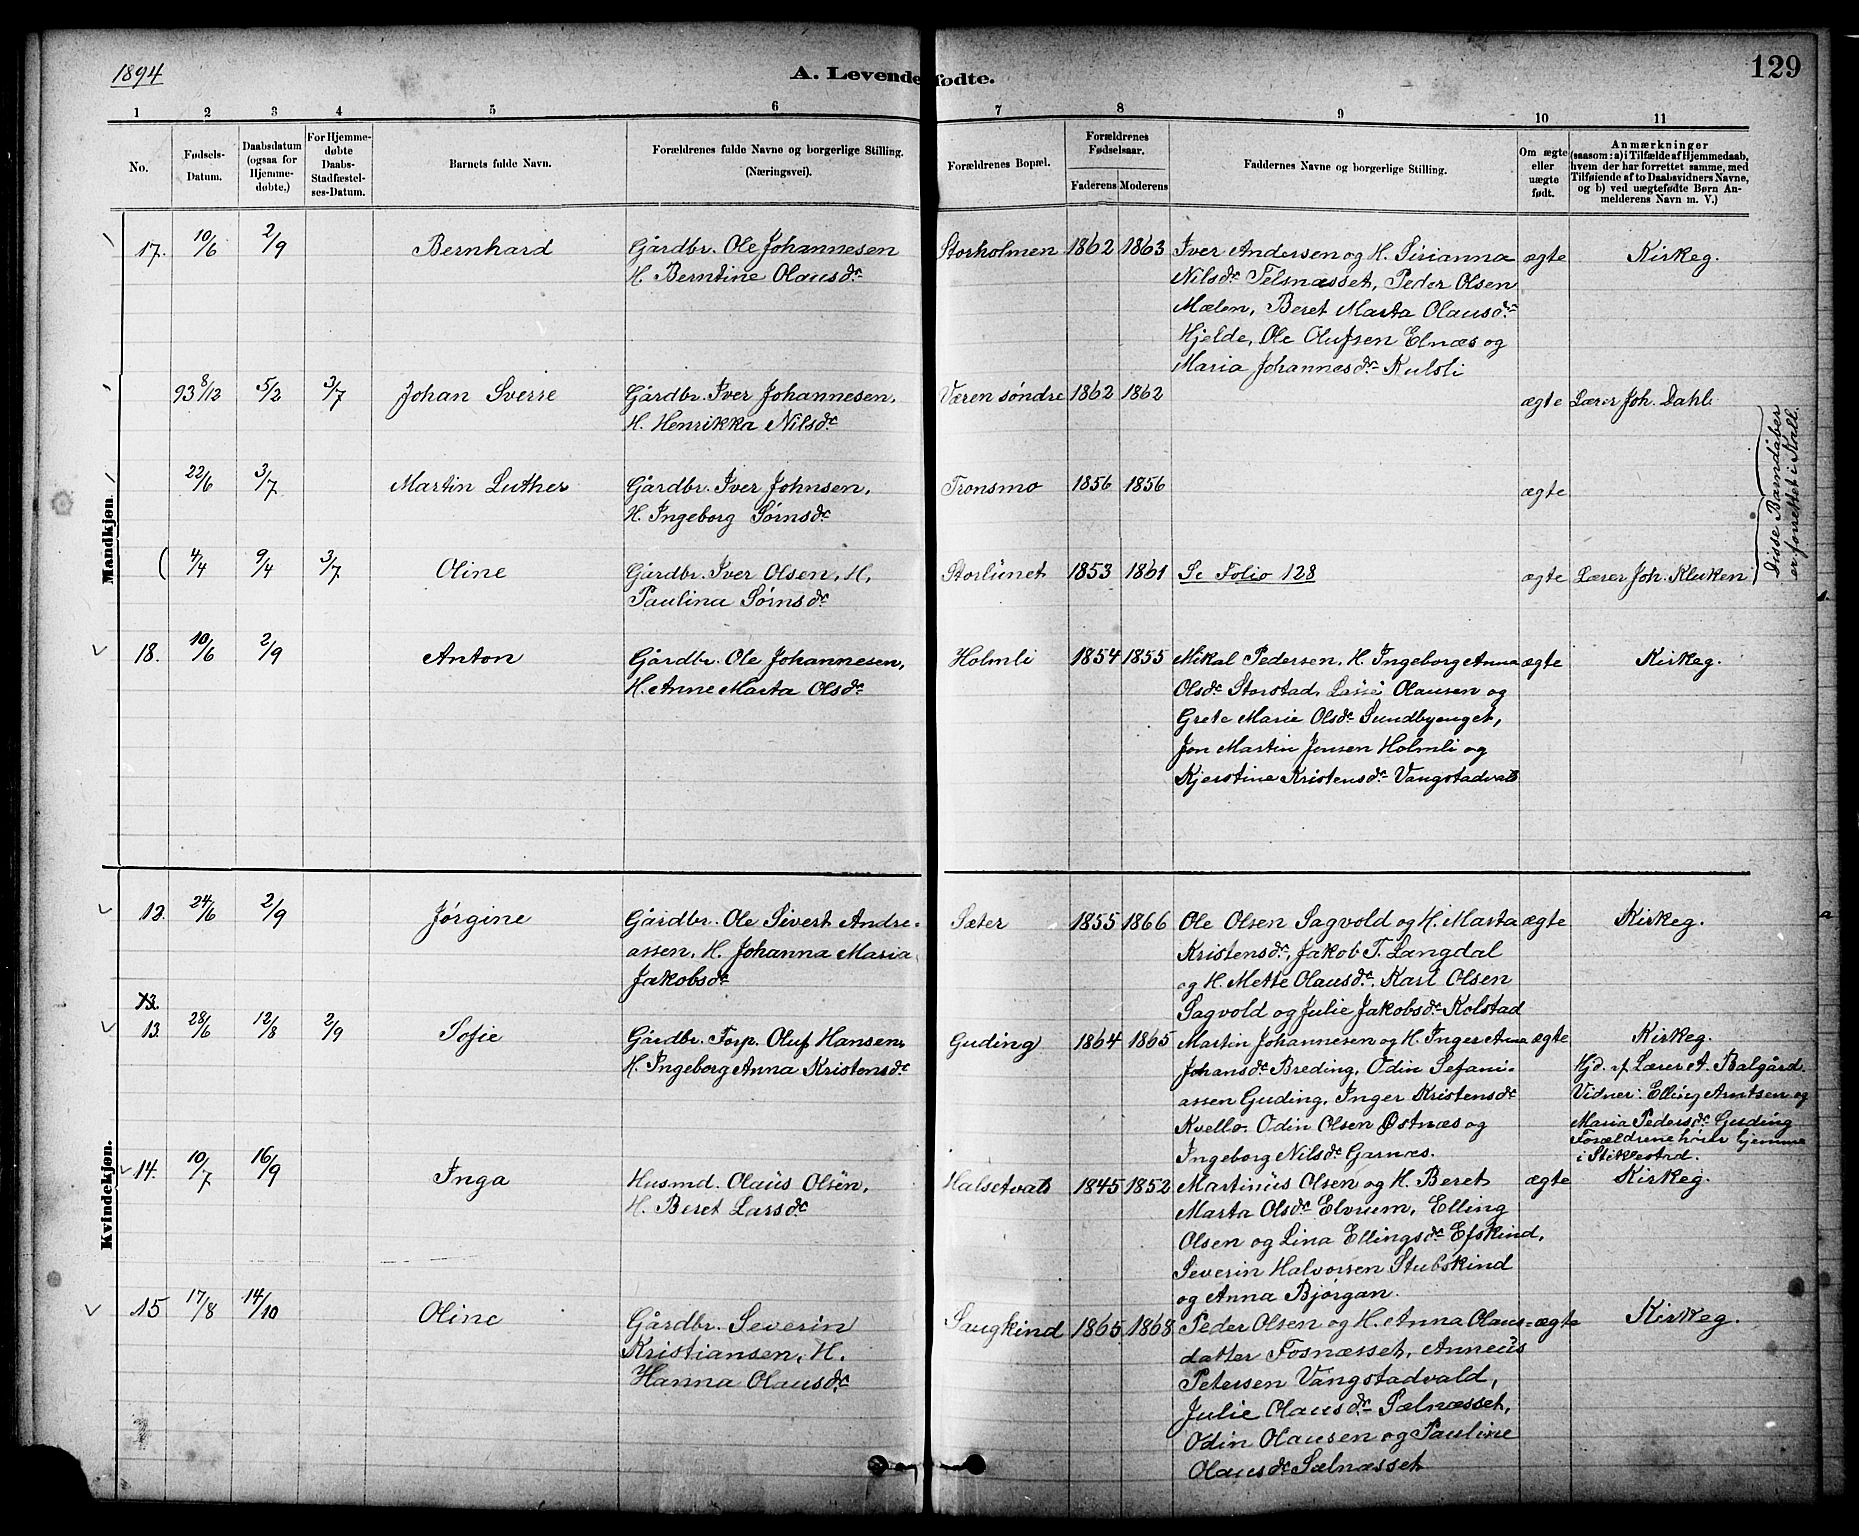 1894
A. Levendefødte.
129
1 2 3 4 5 6 7 8 9 10 11
No.
Fødsels-
Datum.
Daabsdatum
(ogsaa for
Hjemme-
døbte.)
For Hjemme-
døbte
Daabs-
Stadfæstel-
ses-Datum.
Barnets fulde Navn.
Forældrenes fulde Navne og borgerlige Stilling.
(Næringsvei).
Forældrenes Bopæl.
Forældrenes
Fødselsaar.
Faderens Moderens
Faddernes Navne og borgerlige Stilling.
Om ægte
eller
uægte
født.
Anmærkninger
(saasom: a) i Tilfælde af Hjemmedaab,
hvem der har forrettet samme, med
Tilføiende af to Daabsvidners Navne,
og b) ved uægtefødte Børn An-
melderens Navn m. V.)
Mandkjøn.
17. 10/6 2/9 Bernhard Gårdbr. Ole Johannesen Storholmen 1862 1863 Iver Andersen og H. Sirianna ægte Kirkeg.
H. Berntine Olausdr. Nilsdr. Telsnæsset, Peder Olsen
Mælen, Beret Marta Olausdr.
Hjelde, Ole Olufsen Elnæs og
Maria Johannesdr. Kulsli
93 8/12 5/2 3/7 Johan Sverre Gårdbr. Iver Johannesen, Væren søndre 1862 1862 ægte Lærer Joh. Dahl
H. Henrikka Nilsdr.
22/6 3/7 Martin Luther Gårdbr. Iver Johnsen, Tronsmo 1856 1856 ægte
H. Ingeborg Sørnsdr.
4/4 9/4 3/7 Oline Gårdbr. Iver Olsen, H. Storlunet 1853 1861 Se Folio 128 ægte Lærer Joh. Kluken
Paulina Sørnsdr.
Disse Barndåber
er forrettet i Kall.
18. 10/6 2/9 Anton Gårdbr. Ole Johannesen, Holmli 1854 1855 Mikal Pedersen, H. Ingeborg Anna ægte Kirkeg.
H. Anne Marta Olsdr. Olsdr. Storstad, Olausen og
Grete Marie Olsdr. Sundbyenget,
Jon Martin Jensen Holmli og
Kjerstine Kristensdr. Vangstadvald
Kvindekjøn.
12. 24/6 2/9 Jørgine Gårdbr. Ole Sivert Andre- Sæter 1855 1866 Ole Olsen Sagvold og H. Marta ægte Kirkeg.
assen, H. Johanna Maria Kristensdr., Jakob T. Langdal
Jakobsdr. og H. Mette Olausdr., Karl Olsen
13. Sagvold og Julie Jakobsdr. Kolstad
13. 28/6 12/8 2/9 Sofie Gårdbr. Torp. Oluf Hansen, Guding 1864 1865 Martin Johannesen og H. Inger Anna ægte Kirkeg.
H. Ingeborg Anna Kristensdr. Johansdr. Breding, Odin Sefani- Hjd. af Lærer A. Balgård.
assen Guding, Inger Kristensdr. Vidner: Elling Arntsen og
Kvello. Odin Olsen Østnæs og Maria Pedersdr. Guding
Ingeborg Nilsdr. Garnæs. Forældrene hører hjemme
i Stiklestad.
14. 10/7 16/9 Inga Husmd. Olaus Olsen, Halsetvald 1845 1852 Martinus Olsen og H. Beret ægte Kirkeg.
H. Beret Larsdr. Marta Olsdr. Elvrum, Elling
Olsen og Lina Ellingsdr. Efskind,
Severin Halvorsen Stubskind
og Anna Bjørgan.
15 17/8 14/10 Oline Gårdbr. Severin Saugkind 1865 1868 Peder Olsen og H. Anna Olaus- ægte Kirkeg.
Kristiansen, H. datter Fosnæsset, Anneus
Hanna Olausdr. Petersen Vangstadvald,
Julie Olausdr. Sælnæsset,
Odin Olausen og Pauline
Olausdr. Sælnæsset